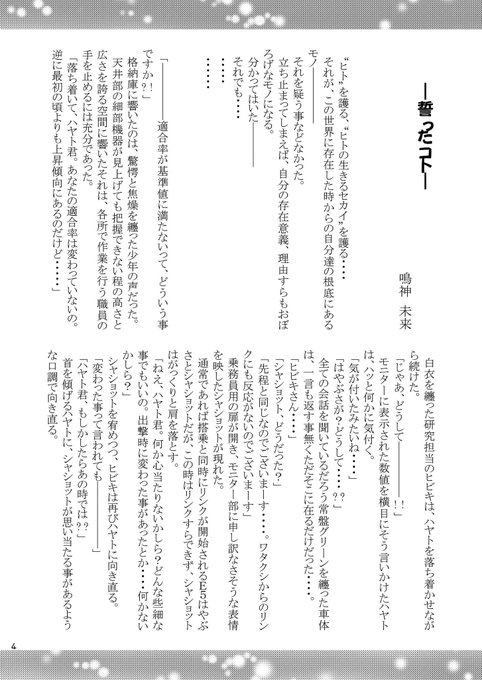 ―誓ったコト―
鳴神 未来
“ヒト”を護る、“ヒトの生きるセカイ”を護る・・・・
それが、この世界に存在した時からの自分達の根底にある
モノ――――
それを疑う事などなかった。
立ち止まってしまえば、自分の存在意義、理由すらもおぼ
ろげなモノになる。
分かってはいた――――
それでも・・・・
・・・・・
「――――――適合率が基準値に満たないって、どういう事
ですか！？」
格納庫に響いたのは、驚愕と焦燥を纏った少年の声だった。
天井部の細部機器が見上げても把握できない程の高さと
広さを誇る空間に響いたそれは、各所で作業を行う職員の
手を止めるには充分であった。
「落ち着いて、ハヤト君。あなたの適合率は変わっていないの。
逆に最初の頃よりも上昇傾向にあるのだけど・・・・・」
白衣を纏った研究担当のヒビキは、ハヤトを落ち着かせなが
ら続けた。
「じゃあ、どうして――――！！」
モニターに表示された数値を横目にそう言いかけたハヤト
は、ハッと何かに気付く。
「気が付いたみたいね・・・・」
「はやぶさが？どうして・・・・・？？」
全ての会話を聞いているだろう常盤グリーンを纏った車体
は、一言も返す事無くただそこに在るだけだった・・・・
「ヒビキさん・・・・」
「シャショット、どうだった？」
「先程と同じなのでございまーす・・・・。ワタクシからのリン
クにも反応がないのでございまーす」
乗務員用の扉が開き、モニター部に申し訳なさそうな表情
を映したシャショットが現れた。
通常であれば搭乗と同時にリンクが開始されるE5はやぶ
さとシャショットだが、この時はリンクすらできず、シャショット
はがっくりと肩を落とす。
「ねえ、ハヤト君。何か心当たりないかしら？どんな些細な
事でもいいの。出撃時に変わった事があったとか・・・・何かない
かしら？」
シャショットを宥めつつ、ヒビキは再びハヤトに向き直る。
「変わった事って言われても――――」
「ハヤト君、もしかしたらあの時では？？」
首を傾げるハヤトに、シャショットが思い当たる事があるよう
な口調で向き直る。
4